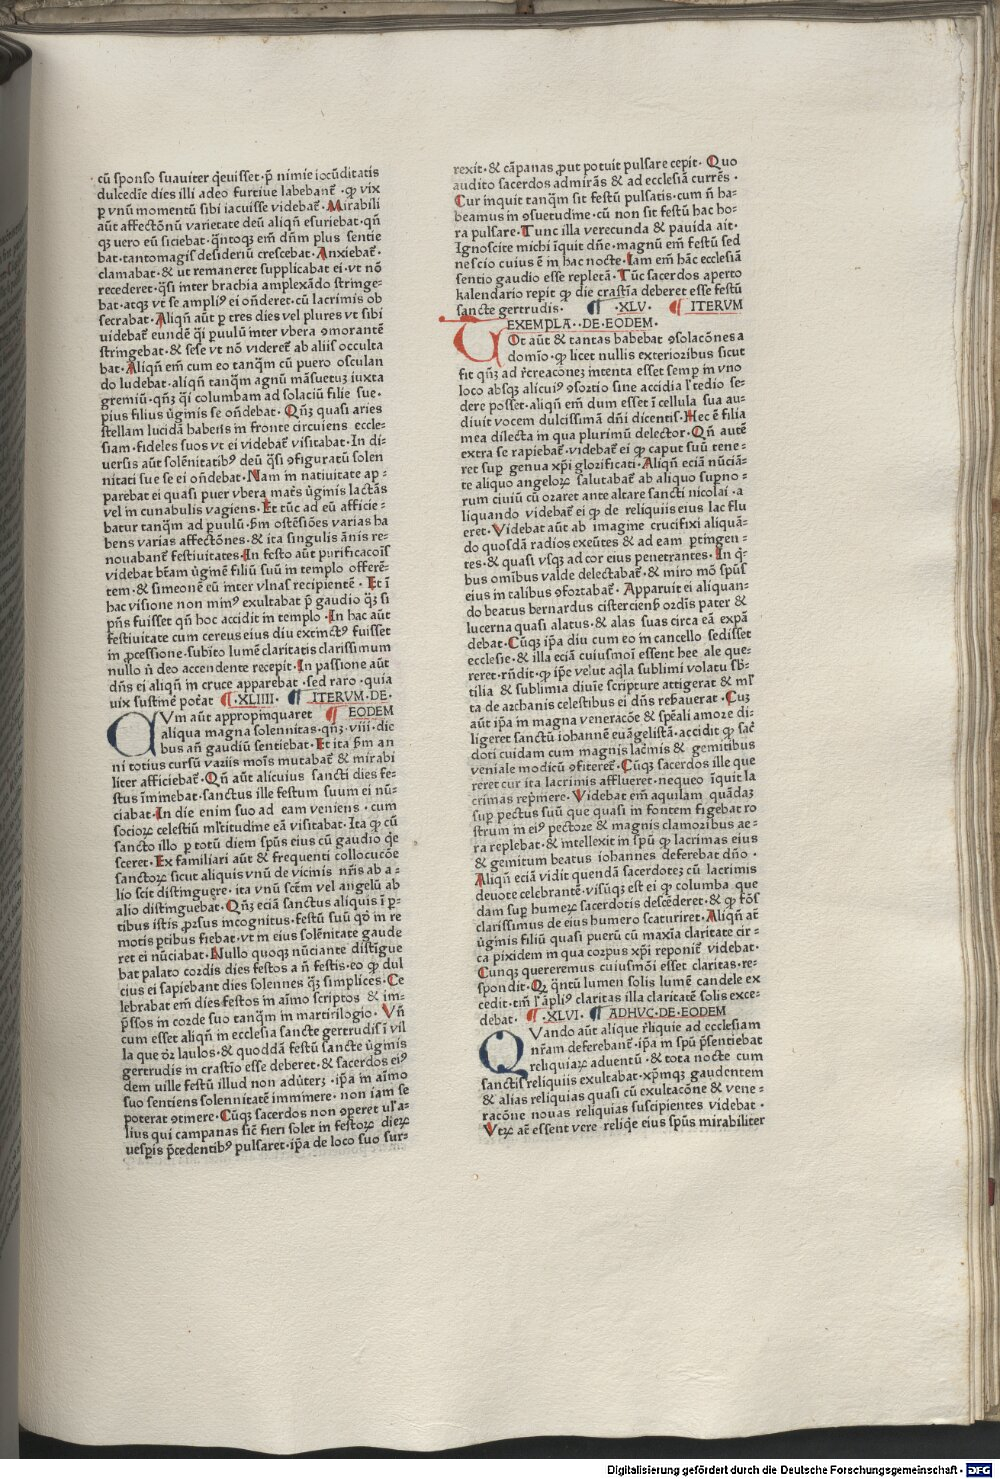 cū sponso suauiter q̄euisset· p̄ nimie iocūditatis
dulcedīe dies illi adeo furtiue labebant̄ · qꝫ vix
p vnū momentū sibi iacuisse videbat̄· Mirabili
aūt affectōnū varietate deū aliqn̄ esuriebat· qn̄
qꝫ uero eū siciebat· q̄ntoqꝫ em̄ dn̄m plus sentie
bat· tantomagis desideriū crescebat· Anxiebat̄·
clamabat· & ut remaneret supplicabat ei· vt nō
recederet· q̄si inter brachia amplexādo stringe-
bat· atqꝫ vt se ampliꝰ ei on̄deret· cū lacrimis ob
secrabat· Aliqn̄ aūt p tres dies vel plures vt sibi
uidebat̄ eundē q̄i puulū inter vbera ꝯmorantē
stringebat· & sese vt nō videret̄ ab aliis occulta
bat· Aliqn̄ em̄ cum eo tanqm̄ cū puero osculan
do ludebat· aliqn̄ tanqm̄ agnū māsuetuꝫ iuxta
gremiū· qn̄ꝫ q̄i columbam ad solaciū filie sue·
pius filius ūginis se on̄debat· Qn̄ꝫ quasi aries
stellam lucidā habens in fronte circuiens eccle-
siam· fideles suos vt ei videbat̄ visitabat· In di-
uersis aūt solēnitatibꝰ deū q̄si ꝯfiguratū solen
nitati sue se ei on̄debat· Nam in natiuitate ap-
parebat ei quasi puer vbera mat̄s ūginis lactās
vel in cunabulis vagiens· Et tūc ad eū afficie-
batur tanqm̄ ad puulū· s̄m ostēsiōes varias ha
bens varias affectōnes· & ita singulis ānis re-
nouabant̄ festiuitates· In festo aūt purificacoīs
videbat bt̄am ūginē filiū suū in templo offerē-
tem· & simeonē eū inter vlnas recipientē · Et ī
hac visione non minꝰ exultabat p̄ gaudio q̄ꝫ si
pn̄s fuisset qn̄ hoc accidit in templo· In hac aūt
festiuitate cum cereus eius diu extinctꝰ fuisset
in ꝓcessione· subito lumē claritatis clarissimum
nullo n̄ deo accendente recepit· In passione aūt
dn̄s ei aliqn̄ in cruce apparebat · sed raro· quia
uix sustinē pot̄at ¶ ·XLIIII· ¶ ITERVM DE·
CVm aūt appropinquaret ¶ EODEM
aliqua magna solennitas· qn̄ꝫ· viii· die
bus an̄ gaudiū sentiebat· Et ita s̄m an
ni totius cursū variis moīs mutabat̄ & mirabi
liter afficiebat̄· Qn̄ aūt alicuius sancti dies fe-
stus īminebat· sanctus ille festum suum ei nū-
ciabat· In die enim suo ad eam veniens · cum
socioꝝ celestiū ml̄titudine eā visitabat· Ita qꝫ cū
sancto illo p totū diem sp̄us eius cū gaudio q̄e
sceret· Ex familiari aūt & frequenti collocucōe
sanctoꝝ sicut aliquis vnū de vicinis nr̄is ab a-
lio scit distinguere· ita vnū scm̄ vel angelū ab
alio distinguebat· Qn̄ꝫ eciā sanctus aliquis ī p-
tibus istis ꝓrsus incognitus· festū suū qō in re
motis ptibus fiebat· vt in eius solēnitate gaude
ret ei nūciabat· Nullo quoqꝫ nūciante distigue
bat palato cordis dies festos a n̄ festis· eo qꝫ dul
cius ei sapiebant dies solennes q̄ꝫ simplices· Ce
lebrabat em̄ dies festos in aīmo scriptos & im-
p̄ssos in corde suo tanqm̄ in martirilogio· Vn̄
cum esset aliqn̄ in ecclesia sancte gertrudis ī vil
la que dꝛ laulos· & quoddā festū sancte ūginis
gertrudis in crastīo esse deberet· & sacerdos eiꝰ
dem uille festū illud non adūterꝫ· ip̄a in aīmo
suo sentiens solennitatē imminere· non iam se
poterat ꝯtinere· Cūqꝫ sacerdos non ꝯperet ul̄ a-
lius qui campanas sic̄ fieri solet in festoꝝ dieꝝ
uesp̄is p̄cedentibꝰ pulsaret· ip̄a de loco suo sur-
rexit· & cāpanas ꝓut potuit pulsare cepit· Quo
audito sacerdos admirās & ad ecclesiā currēs·
Cur inquit tanqm̄ sit festū pulsatis· cum n̄ ha-
beamus in ꝯsuetudīe· cū non sit festū hac ho-
ra pulsare· Tunc illa verecunda & pauida ait·
Ignoscite michi īquit dn̄e· magnū em̄ festū sed
nescio cuius ē in hac nocte· Iam em̄ hāc ecclesiā
sentio gaudio esse repletā· Tūc sacerdos aperto
kalendario repit qꝫ die crastīa deberet esse festū
sancte gertrudis· ¶ ·XLV· ¶ ITERVM
EXEMPLA··DE·EODEM·
TOt aūt & tantas habebat ꝯsolacōnes a
domīo· qꝫ licet nullis exterioribus sicut
fit qn̄ꝫ ad r̄creacōneꝫ intenta esset semp in vno
loco absqꝫ alicuiꝰ ꝯsortio sine accidia l̄ tedio se-
dere posset· aliqn̄ em̄ dum esset ī cellula sua au-
diuit vocem dulcissimā dn̄i dicentis· Hec ē filia
mea dilecta in qua plurimū delector· Qn̄ autē
extra se rapiebat̄· videbat̄ ei qꝫ caput suū tene-
ret sup genua xp̄i glorificati· Aliqn̄ eciā nūciā-
te aliquo angeloꝝ salutabat̄ ab aliquo superno-
rum ciuiū cū oraret ante altare sancti nicolai· a
liquando videbat̄ ei qꝫ de reliquiis eius lac flu
eret· Videbat aūt ab imagine crucifixi aliquā-
do quosdā radios exeūtes & ad eam ptingen-
tes· & quasi vsqꝫ ad cor eius penetrantes· In q̄-
bus omībus valde delectabat̄· & miro mō sp̄us
eius in talibus ꝯfortabat̄· Apparuit ei aliquan-
do beatus bernardus cisterciens̄ ordīs pater &
lucerna quasi alatus· & alas suas circa eā expā
debat· Cūqꝫ ip̄a diu cum eo in cancello sedisset
ecclesie· & illa eciā cuiusmoī essent hee ale que-
reret· rn̄dit· qꝫ ip̄e velut aq̄la sublimi volatu sb̄-
tilia & sublimia diuīe scripture attigerat & ml̄
ta de archanis celestibus ei dn̄s reẜauerat· Cuꝫ
aūt ip̄a in magna veneracōe & sp̄eali amore di-
ligeret sanctū iohannē euāgelistā· accidit qꝫ sac̄
doti cuidam cum magnis lac̄imis & gemitibus
veniale modicū ꝯfiteret̄· Cūqꝫ sacerdos ille que
reret cur ita lacrimis afflueret· nequeo īquit la
crimas rep̄mere· Videbat em̄ aquilam quādaꝫ
sup pectus suū que quasi in fontem figebat ro
strum in eiꝰ pectore & magnis clamoribus ae-
ra replebat· & intellexit in sp̄ū qꝫ lacrimas eius
& gemitum beatus iohannes deferebat dn̄o ·
Aliqn̄ eciā vidit quendā sacerdoteꝫ cū lacrimis
deuote celebrantē· visūqꝫ est ei qꝫ columba que
dam sup humeꝝ sacerdotis descēderet· & qꝫ fōs
clarissimus de eius humero scaturiret· Aliqn̄ aūt
ūginis filiū quasi puerū cū maxīa claritate cir-
ca pixidem in qua corpus xp̄i reponit̄ videbat·
Cunqꝫ quereremus cuiusmōi esset claritas· re-
spondit· Qꝫ q̄ntū lumen solis lumē candele ex
cedit· tm̄ l̄ ampliꝰ claritas illa claritatē solis exce-
debat· ¶ ·XLVI· ¶ ADHVC·DE·EODEM
QVando aūt alique r̄liquie ad ecclesiam
nr̄am deferebant̄· ip̄a in sp̄ū p̄sentiebat
reliquiaꝝ aduentū · & tota nocte cum
sanctis reliquiis exultabat· xp̄mqꝫ gaudentem
& alias reliquias quasi cū exultacōne & vene-
racōne nouas reliquias suscipientes videbat ·
Vtꝝ aūt essent vere reliq̄e eius sp̄us mirabiliter
Digitalisierung gefördert durch die Deutsche Forschungsgemeinschaft · DFG